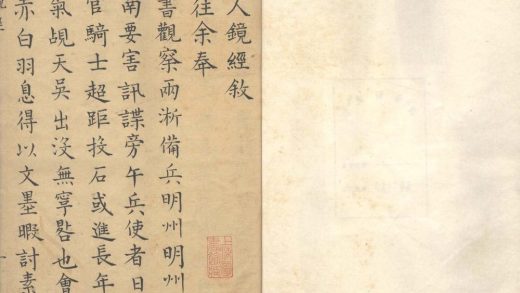 人鏡經敘
往余奉
書觀察兩淅備兵明州明州
南要害訊諜旁午兵使者日
官騎士超距投石或進長年
氣覘天吳出沒無寧晷也會
赤白羽息得以文墨暇討素